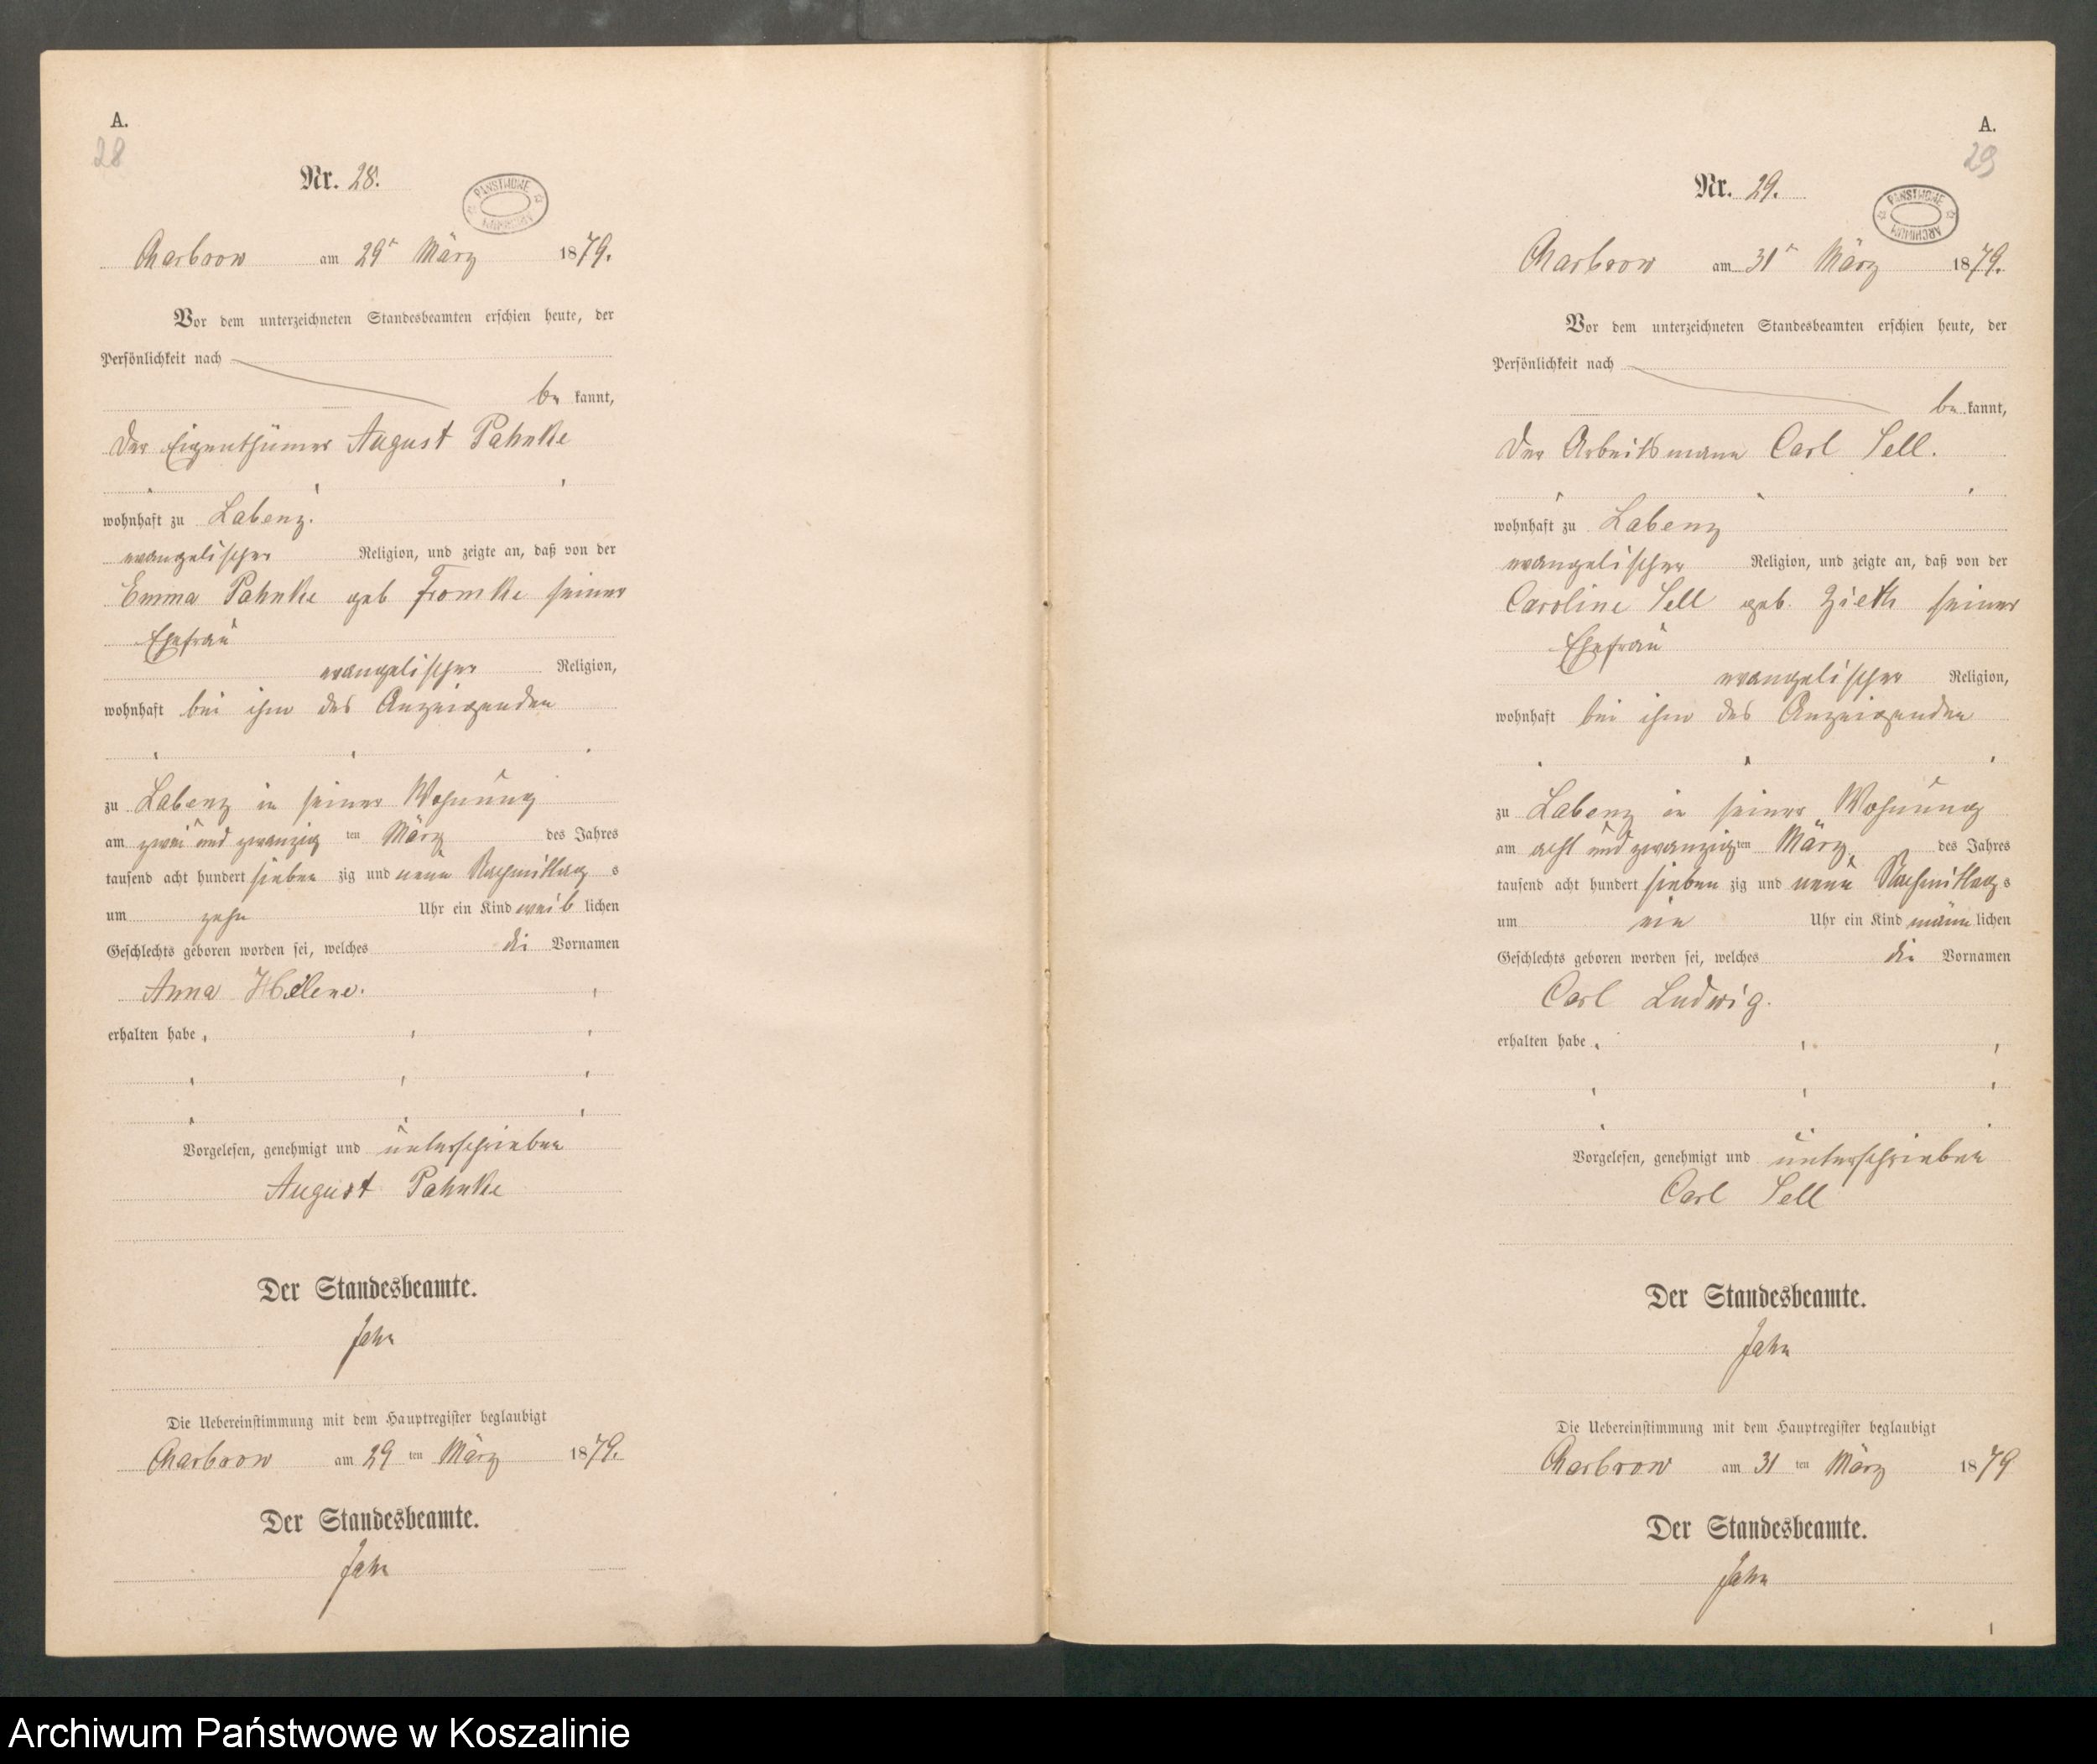 A.
28
Nr. 28.
PAŃSTWOWE ARCHIWUM
Charbrow am 29n März 1879.
Vor dem unterzeichneten Standesbeamten erschien heute, der
Persönlichkeit nach
be kannt,
Der Eigenthümer August Pahnke
wohnhaft zu Labenz.
evangelischer Religion, und zeigte an, daß von der
Emma Pahnke geb Fromke seiner
Ehefrau
evangelischer Religion,
wohnhaft bei ihm des Anzeigenden
zu Labenz in seiner Wohnung
am zwei und zwanzig ten März des Jahres
tausend acht hundert sieben zig und neun Nachmittag s
um zehn Uhr ein Kind weib lichen
Geschlechts geboren worden sei, welches die Vornamen
Anna Helene.
erhalten habe
Vorgelesen, genehmigt und unterschrieben
August Pahnke
Der Standesbeamte.
Jahn
Die Uebereinstimmung mit dem Hauptregister beglaubigt
Charbrow am 29 ten März 1879.
Der Standesbeamte.
Jahn
A.
29
Nr. 29.
PAŃSTWOWE ARCHIWUM
Charbrow am 31n März 1879.
Vor dem unterzeichneten Standesbeamten erschien heute, der
Persönlichkeit nach
be kannt,
Der Arbeitsmann Carl Sell.
wohnhaft zu Labenz
evangelischer Religion, und zeigte an, daß von der
Caroline Sell geb. Zieth seiner
Ehefrau
evangelischer Religion,
wohnhaft bei ihm des Anzeigenden
zu Labenz in seiner Wohnung
am acht und zwanzig ten März des Jahres
tausend acht hundert sieben zig und neun Nachmittag s
um ein Uhr ein Kind männ lichen
Geschlechts geboren worden sei, welches die Vornamen
Carl Ludwig.
erhalten habe
Vorgelesen, genehmigt und unterschrieben
Carl Sell
Der Standesbeamte.
Jahn
Die Uebereinstimmung mit dem Hauptregister beglaubigt
Charbrow am 31 ten März 1879
Der Standesbeamte.
Jahn
Archiwum Państwowe w Koszalinie